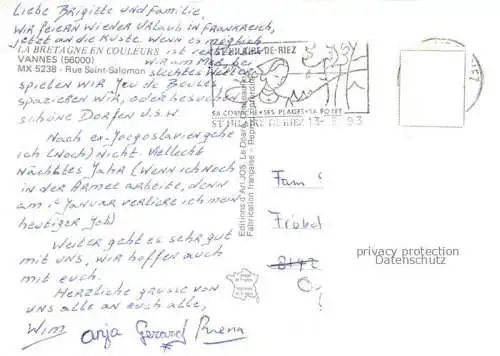 Liebe Brigitte und Familie,
Wir feiern wieder Urlaub in Frankreich,
jetzt an die Küste. Wenn es möglich
LA BRETAGNE EN COULEURS ist
VANNES (56000) wir am Meer, bei
MX 5238 - Rue Saint-Salomon slechtes Wetter
spielen wir Jeu de Boules
spazieren wir, oder besuchen
schöne Dorfen u.s.w.
Nach ex-Joegoslavien gehe
ich (noch) nicht. Vielleicht
nächstes Jahr (Wenn ich noch
in der Armee arbeite, denn
am 1e Januar verliere ich mein
heutiger Job)
Weiter geht es sehr gut
mit uns, wir hoffen auch
mit euch.
Herzliche grüsse von
uns alle an euch alle,
Wim Anja Gerard
ST HILAIRE-DE-RIEZ
SA CORNICHE • SES PLAGES • SA FORET
ST HILAIRE DE RIEZ 13- 93
Editions d'Art JOS, Le Doaré
Fabrication française - Reproduction
Fam
Fröbel
8142
privacy protection
Datenschutz